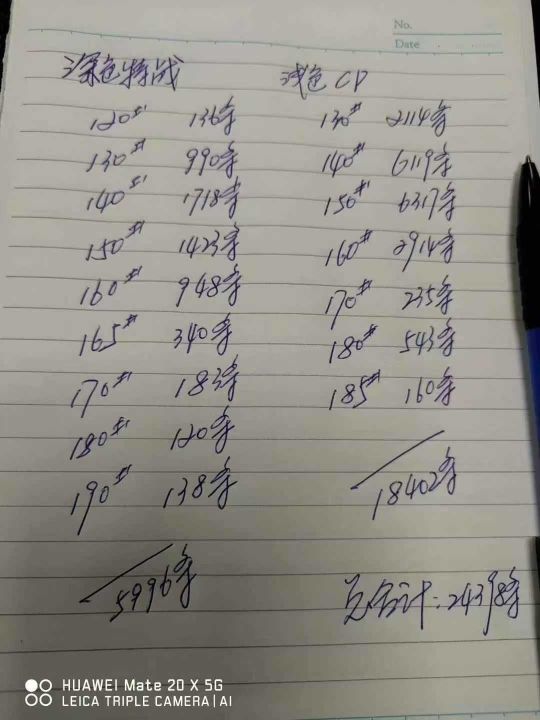 No.
Date
深色特战 浅色CP
120# 136套 130# 2114套
130# 990套 140# 6119套
140# 1718套 150# 6317套
150# 1423套 160# 2914套
160# 948套 170# 235套
165# 340套 180# 543套
170# 183套 185# 160套
180# 120套
190# 138套 18402套
5996套 总合计:24398套
HUAWEI Mate 20 X 5G
LEICA TRIPLE CAMERA | AI